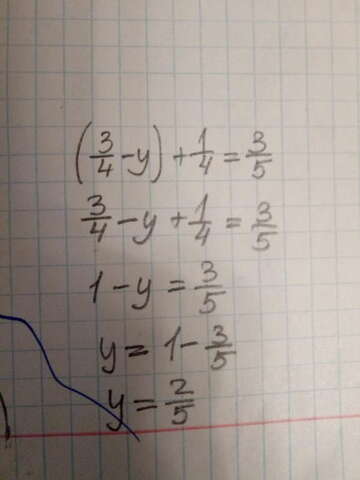 (3/4 - y) + 1/4 = 3/5
3/4 - y + 1/4 = 3/5
1 - y = 3/5
y = 1 - 3/5
y = 2/5